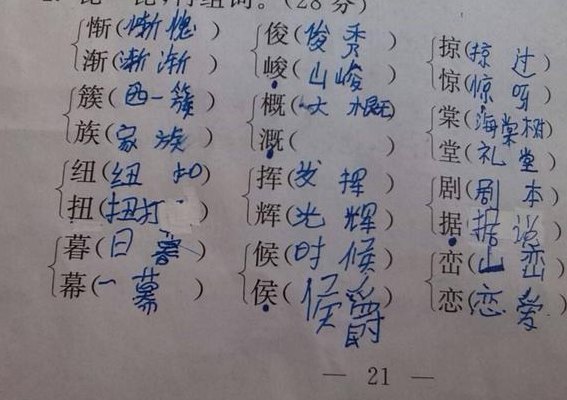 比一比,再组词。(28分)
惭(惭愧) 俊(俊秀) 掠(掠过)
渐(渐渐) 峻(山峻) 惊(惊呀)
簇(西一簇) 概(大概) 棠(海棠树)
族(家族) 溉( ) 堂(礼堂)
纽(纽扣) 挥(发挥) 剧(剧本)
扭(扭打) 辉(光辉) 据(据说)
暮(日暮) 候(时候) 峦(山峦)
幕(一幕) 侯(侯爵) 恋(恋爱)
— 21 —